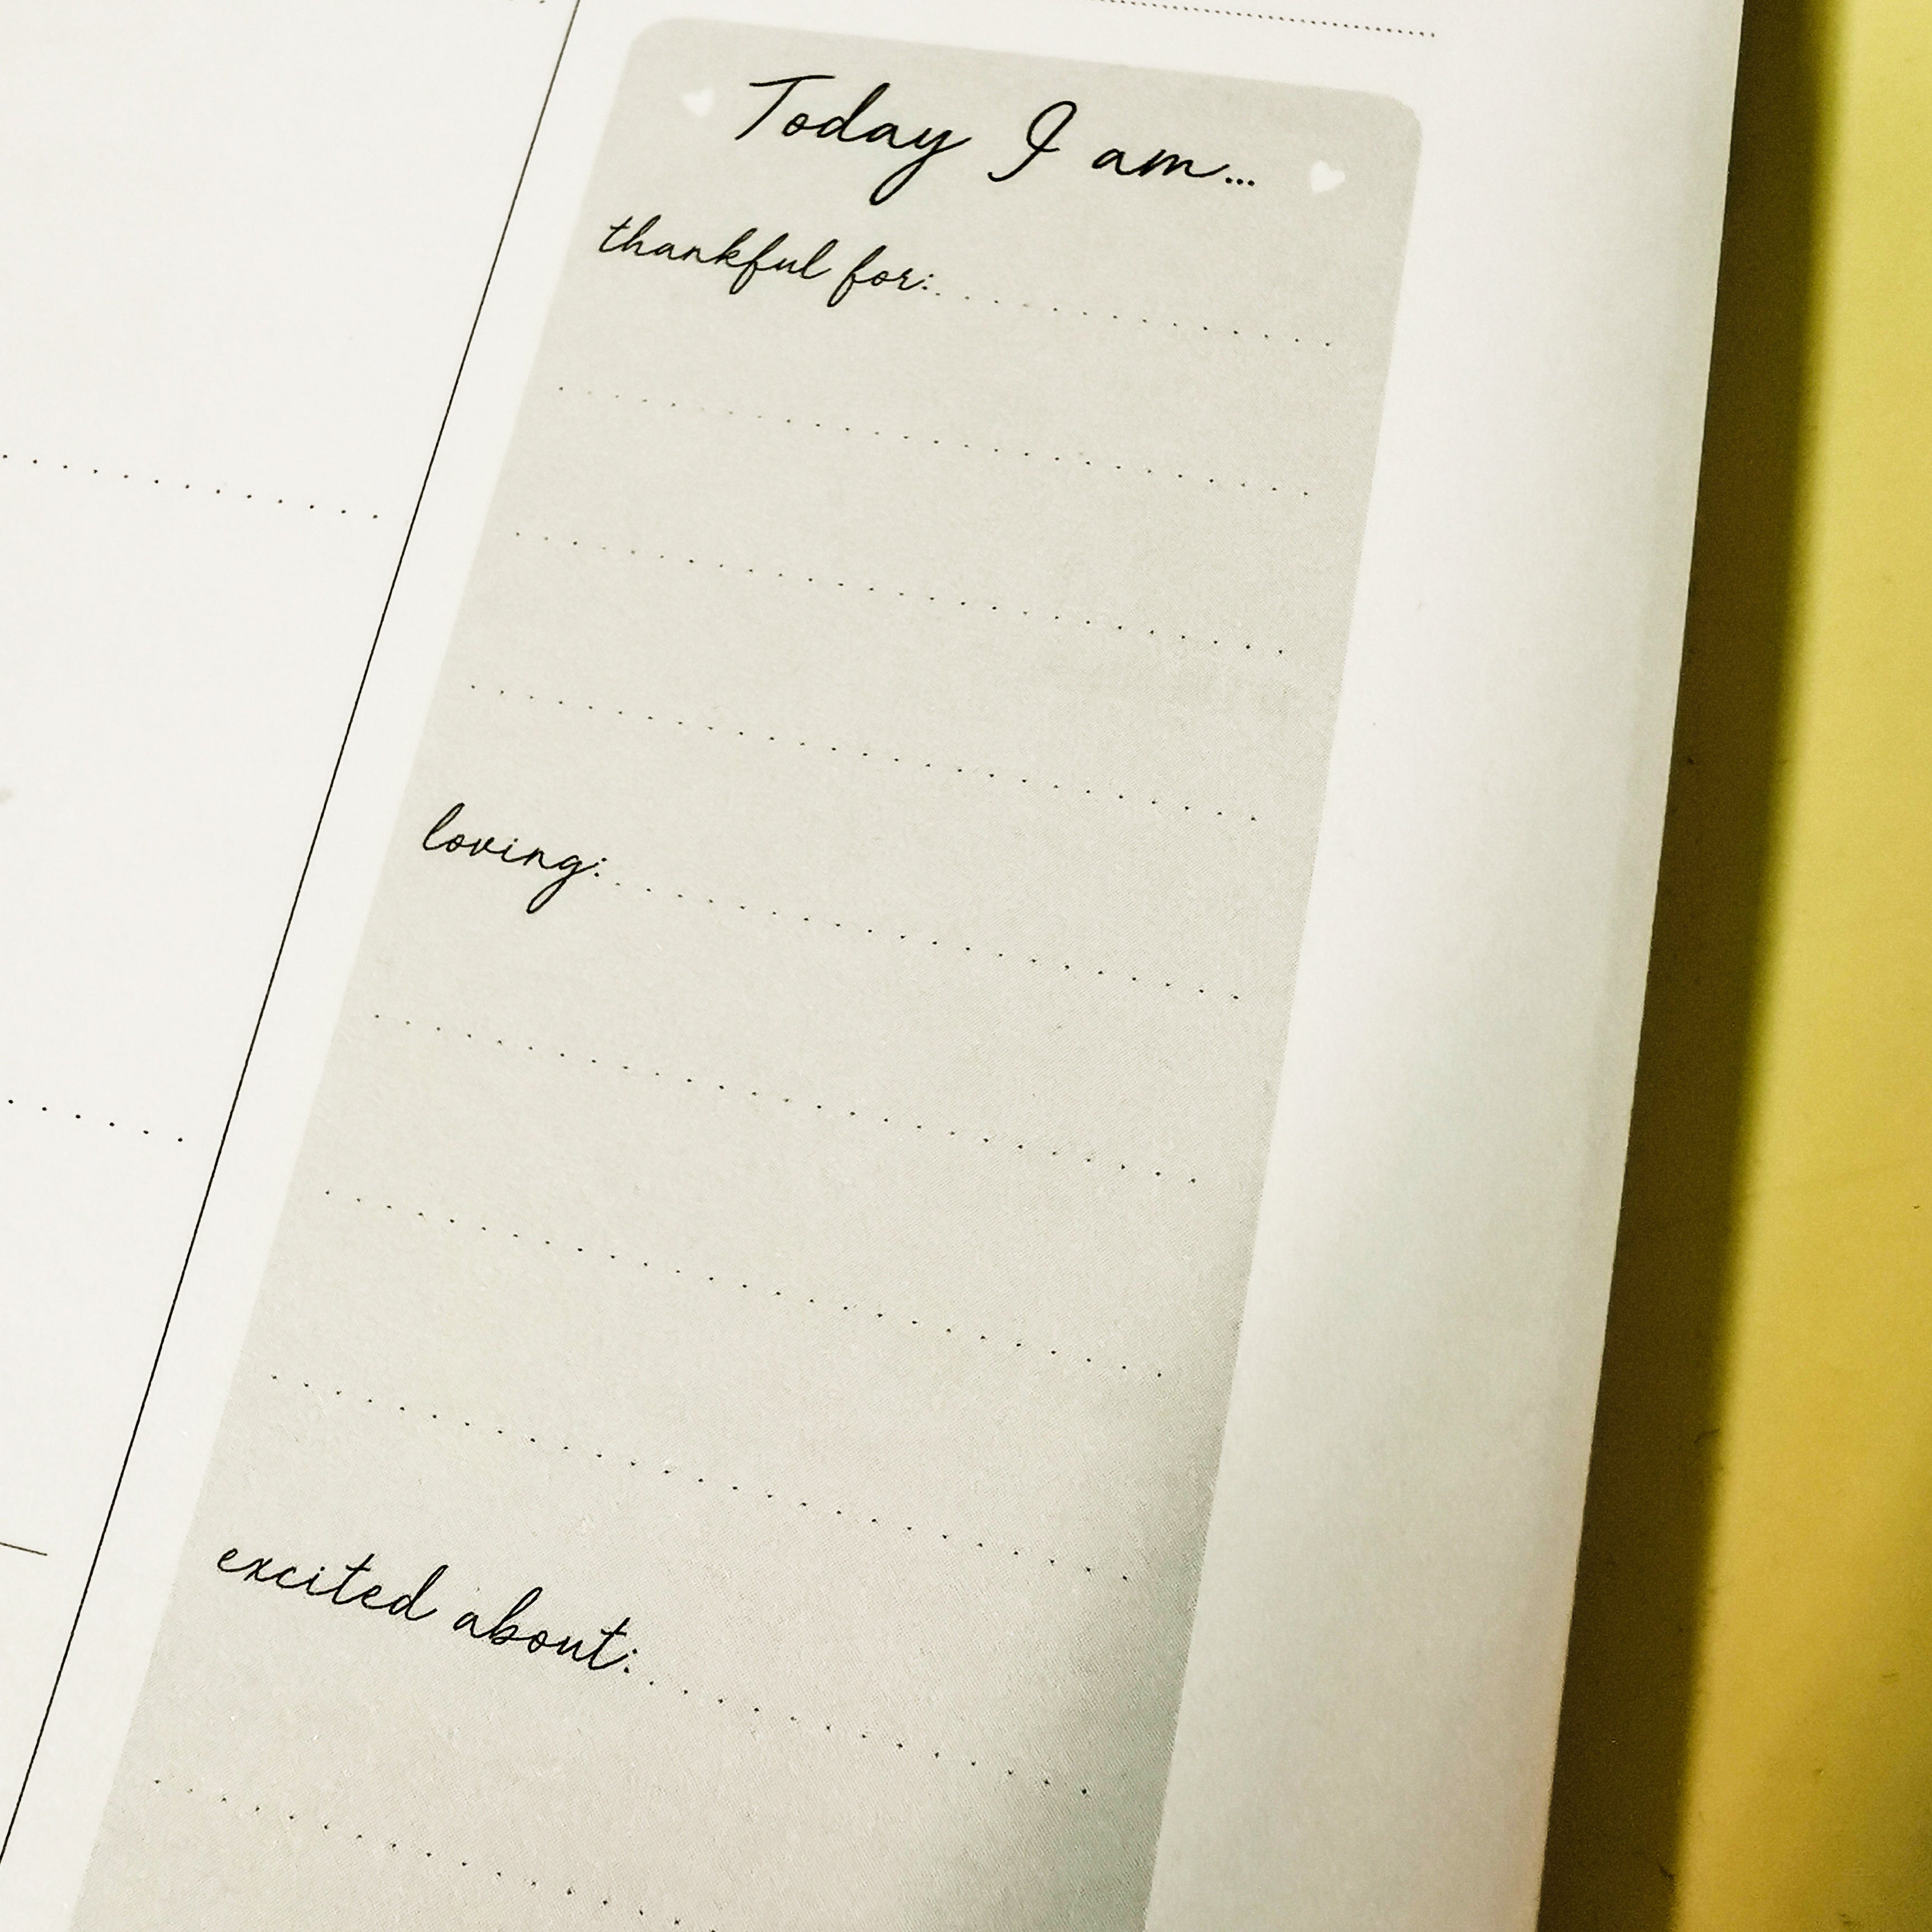 Today I am...
thankful for:
loving:
excited about: